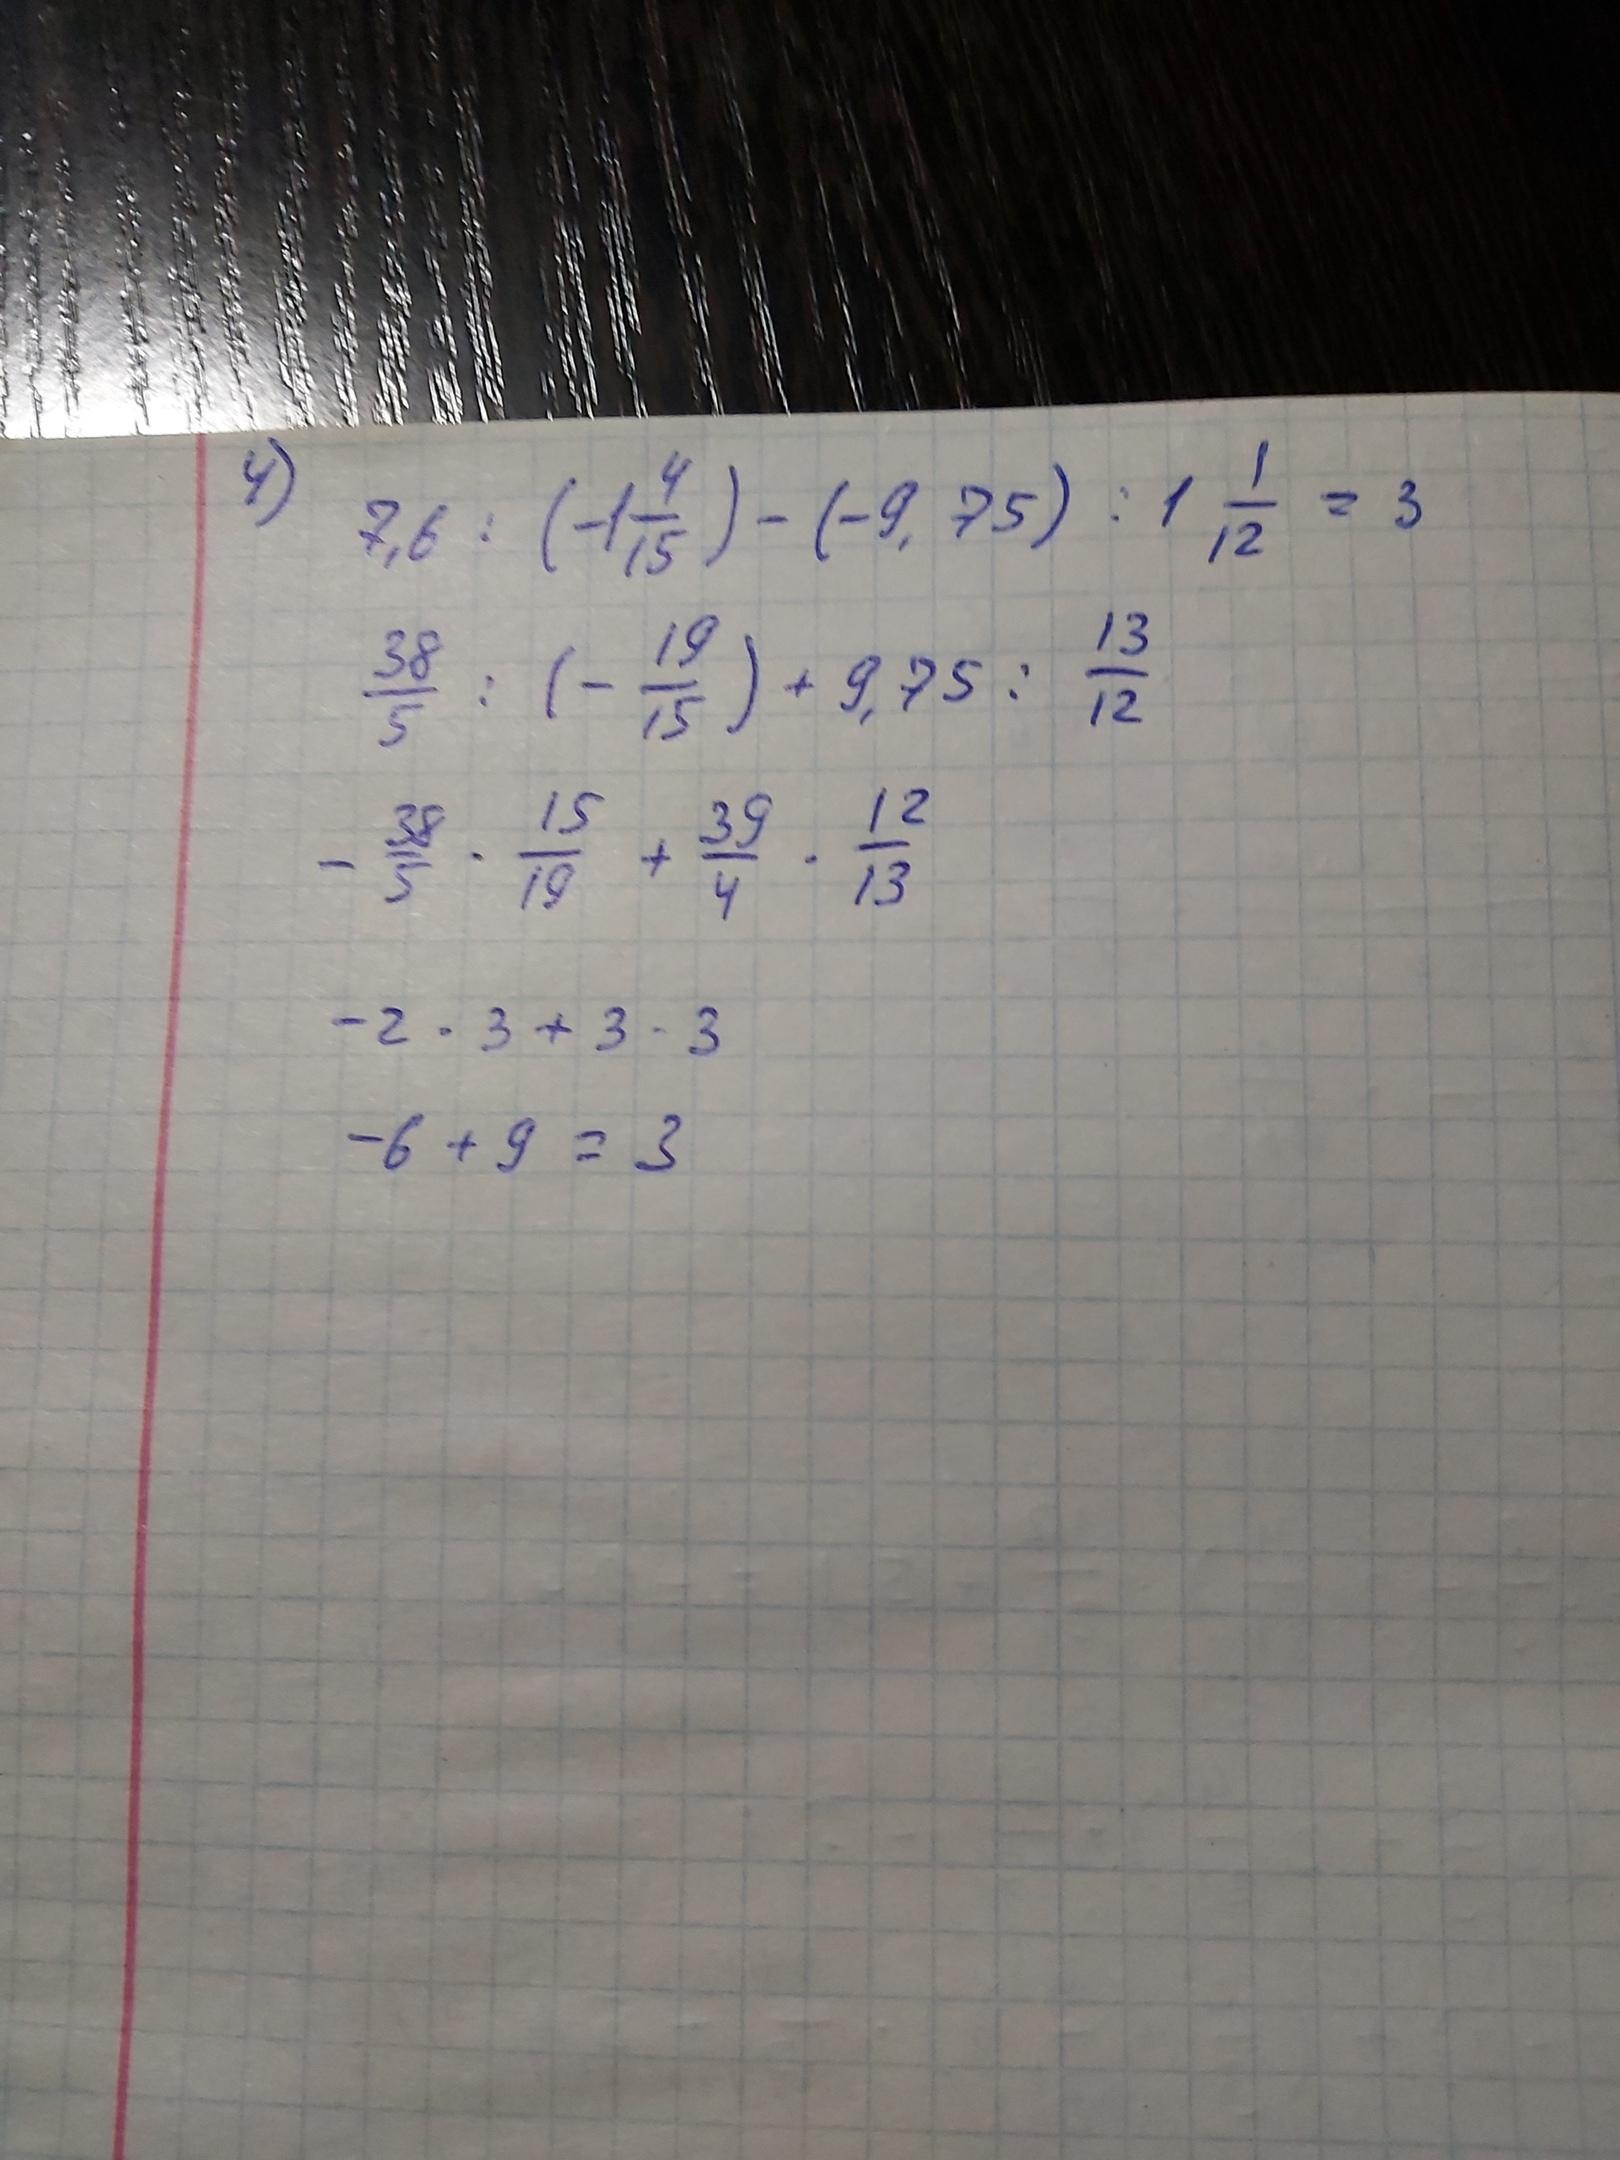 4) 7,6 : (-1 4/15) - (-9,75) : 1 1/12 = 3
38/5 : (- 19/15) + 9,75 : 13/12
- 38/5 · 15/19 + 39/4 · 12/13
-2 · 3 + 3 · 3
-6 + 9 = 3